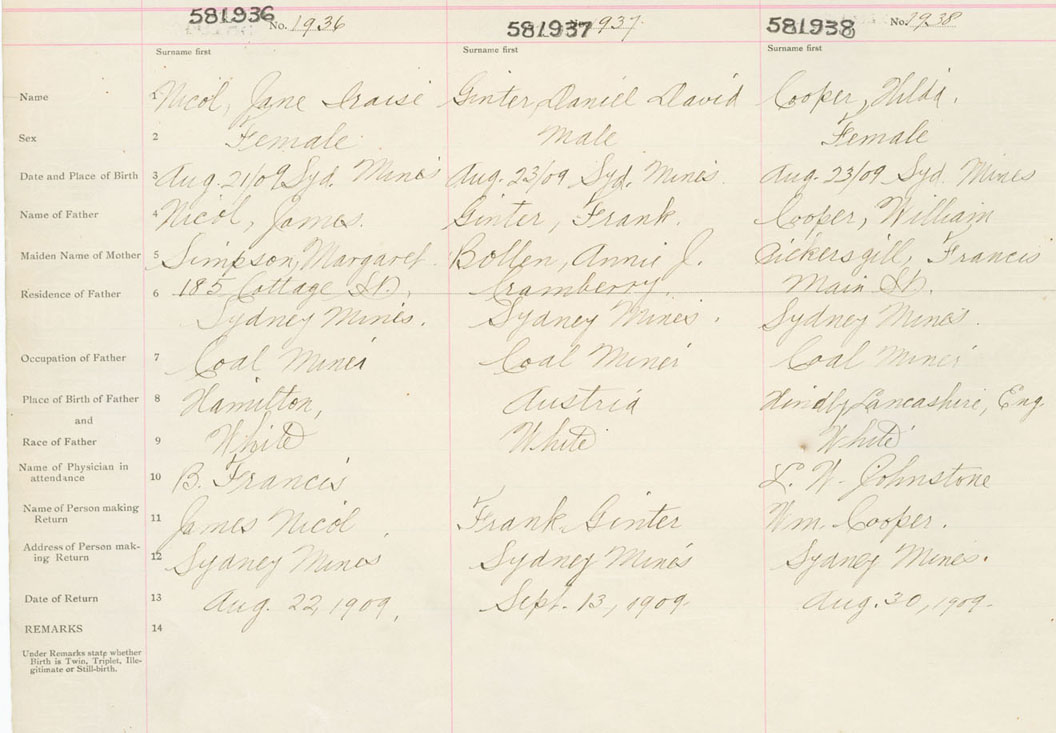 581936 No. 1936 581937 1937 581938 No. 1938
Surname first Surname first Surname first
Name 1 Nicol, Jane Ginter, Daniel David Cooper, Hilda.
Sex 2 Female Male Female
Date and Place of Birth 3 Aug. 21/09 Syd. Mines Aug. 23/09 Syd. Mines Aug. 23/09 Syd. Mines
Name of Father 4 Nicol, James. Ginter, Frank. Cooper, William
Maiden Name of Mother 5 Simpson, Margaret. Bollen, Annie J. Pickersgill, Francis
Residence of Father 6 185 Cottage St., Cramberry. Main St.
Sydney Mines. Sydney Mines. Sydney Mines.
Occupation of Father 7 Coal Miner Coal Miner Coal Miner
Place of Birth of Father 8 Hamilton, Austria Hindly, Lancashire, Eng.
and
Race of Father 9 White White White
Name of Physician in
attendance 10 B. Francis L. W. Johnstone
Name of Person making
Return 11 James Nicol. Frank Ginter Wm. Cooper.
Address of Person mak-
ing Return 12 Sydney Mines Sydney Mines Sydney Mines.
Date of Return 13 Aug. 22, 1909, Sept. 13, 1909. Aug. 30, 1909.
REMARKS 14
Under Remarks state whether
Birth is Twin, Triplet, Ille-
gitimate or Still-birth.